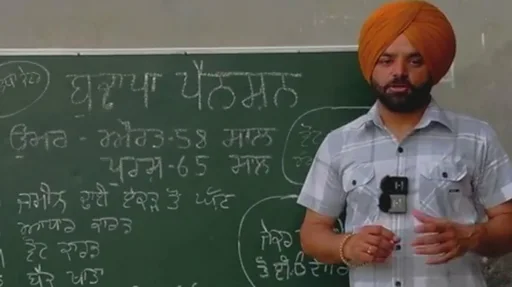 ਬੁਢਾਪਾ ਪੈਨਸ਼ਨ
ਉਮਰ - ਔਰਤ-58 ਸਾਲ
ਪੁਰਸ਼-65 ਸਾਲ
ਜ਼ਮੀਨ ਢਾਈ ਏਕੜ ਤੋਂ ਘੱਟ
ਆਧਾਰ ਕਾਰਡ
ਵੋਟ ਕਾਰਡ
ਬੈਂਕ ਖਾਤਾ